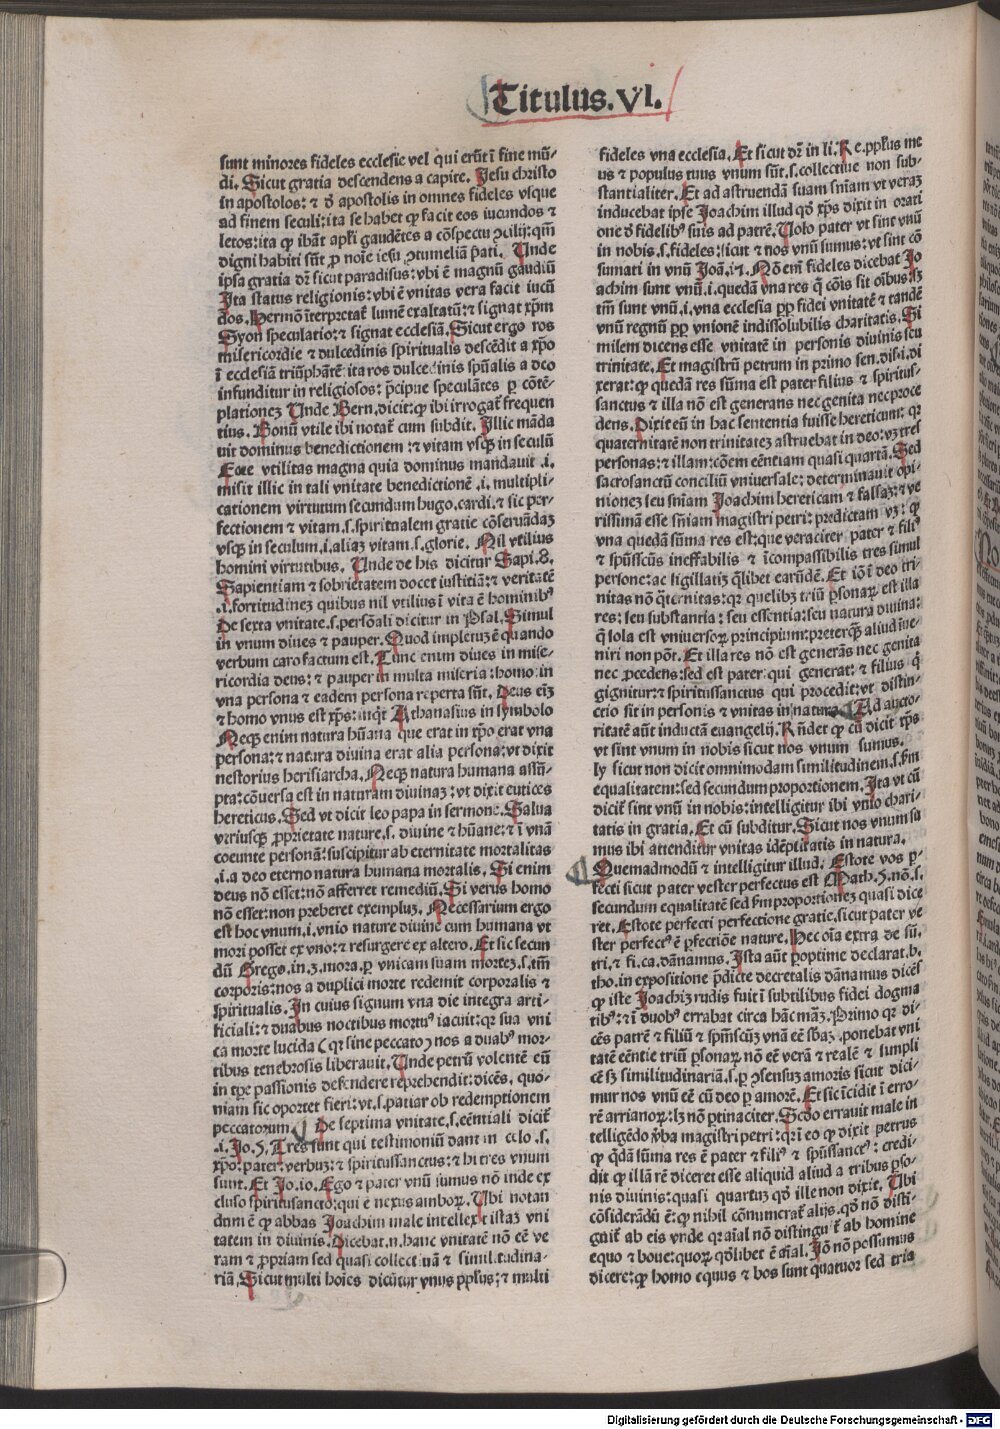 Titulus.VI.
sunt minores fideles ecclesie vel qui erūt ī fine mū-
di. Sicut gratia descendens a capite. Jesu christo
in apostolos: ⁊ d̄ apostolis in omnes fideles vsque
ad finem seculi: ita se habet ꝙ facit eos iucundos ⁊
letos: ita ꝙ ibāt apl̄i gaudētes a cōspectu ↄcilij: qm̄
digni habiti sūt ꝓ noīe iesu ↄtumeliā p̄ati. Unde
ipsa gratia dr̄ sicut paradisus: vbi ē magnū gaudiū
Ita status religionis: vbi ē vnitas vera facit iucū
dos. Hermō īterpretat̄ lumē exaltatū: ⁊ signat xp̄m
Syon speculatio: ⁊ signat ecclesiā. Sicut ergo ros
misericordie ⁊ dulcedinis spiritualis descēdit a xp̄o
ī ecclesiā triūphātē: ita ros dulcedinis spūalis a deo
infunditur in religiosos: p̄cipue speculātes ꝑ cōtē-
plationeꝫ Unde Bern. dicit: ꝙ ibi irrogat̄ frequen
tius. Bonū vtile ibi notat̄ cum subdit. Illic māda
uit dominus benedictionem: ⁊ vitam vsqꝫ in seculū
Ecce vtilitas magna quia dominus mandauit .i.
misit illic in tali vnitate benedictionē .i. multipli-
cationem virtutum secundum hugo. cardi. ⁊ sic per-
fectionem ⁊ vitam .s. spiritualem gratie cōseruādaꝫ
vsqꝫ in seculum .i. aliaꝫ vitam .s. glorie. Nil vtilius
homini virtutibus. Unde de his dicitur Sapi. 8.
Sapientiam ⁊ sobrietatem docet iustitiā: ⁊ veritatē
.i. fortitudineꝫ quibus nil vtilius ī vita ē hominibꝰ
De sexta vnitate .s. personali dicitur in Psal. Simul
in vnum diues ⁊ pauper. Quod impletuꝫ ē quando
verbum caro factum est. Tunc enim diues in mise-
ricordia deus: ⁊ pauper in multa miseria: homo in
vna persona ⁊ eadem persona reperta sūt. Deus eīꝫ
⁊ homo vnus est xp̄s: inqͥt Athanasius in symbolo
Neqꝫ enim natura hūana que erat in xp̄o erat vna
persona: ⁊ natura diuina erat alia persona: vt dixit
nestorius herisiarcha. Neqꝫ natura humana assū-
pta: cōuersa est in naturam diuinaꝫ: vt dixit eutices
hereticus. Sed vt dicit leo papa in sermone. Salua
vtriusqꝫ ꝓprietate nature .s. diuine ⁊ hūane: ⁊ ī vnā
coeunte personā: suscipitur ab eternitate mortalitas
.i. a deo eterno natura humana mortalis. Si enim
deus nō esset: nō afferret remediū. Si verus homo
nō esset: non preberet exempluꝫ. Necessarium ergo
est hoc vnum .i. vnio nature diuine cum humana vt
mori posset ex vno: ⁊ resurgere ex altero. Et sic secun
dū Grego. in .3. mora. ꝑ vnicam suam morteꝫ .s. tm̄
corporis: nos a duplici morte redemit corporalis ⁊
spiritualis. In cuius signum vna die integra arti-
ficiali: ⁊ duabus noctibus mortuꝰ iacuit: qr sua vni
ca morte lucida (qr sine peccato) nos a duabꝰ mor-
tibus tenebrosis liberauit. Unde petrū volentē eū
in tpe passionis defendere reprehendit: dicēs. quo-
niam sic oportet fieri: vt .s. patiar ob redemptionem
peccatorum. De septima vnitate .s. eentiali dicit̄
.i. Jo. 5. Tres sunt qui testimoniū dant in celo .s.
xp̄o: pater: verbuꝫ: ⁊ spiritussanctus: ⁊ hi tres vnum
sunt. Et Jo. io. Ego ⁊ pater vnū sumus nō inde ex
cluso spiritusancto: qui ē nexus amborꝝ. Ubi notan
dum ē ꝙ abbas Joachim male intellexit istaꝫ vni
tatem in diuinis. Dicebat .n. hanc vnitatē nō eē ve
ram ⁊ ꝓpriam sed quasi collectiuā ⁊ similitudina-
riā. Sicut multi hoīes dicūtur vnus ppl̄us: ⁊ multi
fideles vna ecclesia. Et sicut dr̄ in li. Re. ppl̄us me
us ⁊ populus tuus vnum sūt .s. collectiue non sub-
stantialiter. Et ad astruendā suam sn̄iam vt veraꝫ
inducebat ipse Joachim illud qd̄ xp̄s dixit in orati
one d̄ fidelibꝰ suis ad patrē. Uolo pater vt sint vnū
in nobis .s. fideles: sicut ⁊ nos vnū sumus: vt sint cō
sumati in vnū Joā. i7. Nō em̄ fideles dicebat Jo
achim sunt vnū .i. quedā vna res q̄ cōis sit oībus: sꝫ
tm̄ sunt vnū .i. vna ecclesia ꝓp̄ fidei vnitatē ⁊ tandē
vnū regnū ꝓp̄ vnionē indissolubilis charitatis. Si
milem dicens esse vnitatē in personis diuinis seu
trinitate. Et magistrū petrum in primo sen. dis. i. di
xerat: ꝙ quedā res sūma est pater filius ⁊ spiritus-
sanctus ⁊ illa nō est generans nec genita nec proce
dens. Dixit eū in hac sententia fuisse hereticum: qr
quaternitatē non trinitateꝫ astruebat in deo: vꝫ tres
personas: ⁊ illam: cōem eēntiam quasi quartā. Sed
sacrosanctū conciliū vniuersale: determinauit opi-
nioneꝫ seu sn̄iam Joachim hereticam ⁊ falsaꝫ: ⁊ ve
rissimā esse sn̄iam magistri petri: predictam vꝫ: ꝙ
vna quedā sūma res est: que veraciter pater ⁊ filiꝰ
⁊ spūssc̄us ineffabilis ⁊ īcompassibilis tres simul
persone: ac sigillatiꝫ q̄libet earūdē. Et iō ī deo tri-
nitas nō q̄ternitas: qr quelibꝫ triū ꝑsonarꝝ est illa
res: seu substantia: seu essentia: seu natura diuina:
q̄ sola est vniuersorꝝ principium: preterqꝫ aliud īue-
niri non pōt. Et illa res nō est generās nec genita
nec ꝓcedens: sed est pater qui generat: ⁊ filius q̄
gignitur: ⁊ spiritussanctus qui procedit: vt distin-
ctio sit in personis ⁊ vnitas in natura. Ad aucto-
ritatē aūt inductā euangelij. Rn̄det ꝙ cū dicit xp̄s
vt sint vnum in nobis sicut nos vnum sumus.
ly sicut non dicit omnimodam similitudinem .s. ẜm
equalitatem: sed secundum proportionem. Ita vt cū
dicit̄ sint vnū in nobis: intelligitur ibi vnio chari-
tatis in gratia. Et cū subditur. Sicut nos vnum su
mus ibi attenditur vnitas idēptitatis in natura.
Quemadmodū ⁊ intelligitur illud. Estote vos ꝑ-
fecti sicut pater vester perfectus est Math. 5. nō .s.
secundum equalitatē sed ẜm proportioneꝫ quasi dice
ret. Estote perfecti perfectione gratie. sicut pater ve
ster perfectꝰ ē ꝑfectiōe nature. Hec oīa extra de sū.
tri. ⁊ fi. ca. dānamus. Ista aūt ꝑoptime declarat. b.
tho. in expositione p̄dicte decretalis dānamus dicēs
ꝙ iste Joachiꝫ rudis fuit ī subtilibus fidei dogma
tibꝰ: ⁊ ī duobꝰ errabat circa hāc māꝫ. Primo qr di-
cēs patrē ⁊ filiū ⁊ spm̄scūꝫ vnā eē sb̄aꝫ. ponebat vni
tatē eēntie triū ꝑsonarꝝ nō eē verā ⁊ realē ⁊ simpli
cē sꝫ similitudinariā .s. ꝑ ↄsensuꝫ amoris sicut dici-
mur nos vnū eē cū deo ꝑ amorē. Et sic īcidit ī erro-
rē arrianorꝝ: lꝫ nō ꝑtinaciter. Scdo errauit male in
telligēdo ꝟba magistri petri: qr ī eo ꝙ dixit petrus
ꝙ q̄dā sūma res ē pater ⁊ filiꝰ ⁊ spūssancꝰ: credi-
dit ꝙ illā rē diceret esse aliquid aliud a tribus ꝑso-
nis diuinis: quasi quartuꝫ qd̄ ille non dixit. Ubi
cōsiderādū ē: ꝙ nihil cōnumerat̄ alijs. qd̄ nō disti-
guit̄ ab eis vnde qr aīal nō distinguit̄ ab homine
equo ⁊ boue: quorꝝ qd̄libet ē aīal. Jō nō possumus
dicere: ꝙ homo equus ⁊ bos sunt quatuor sed tria
Digitalisierung gefördert durch die Deutsche Forschungsgemeinschaft - DFG